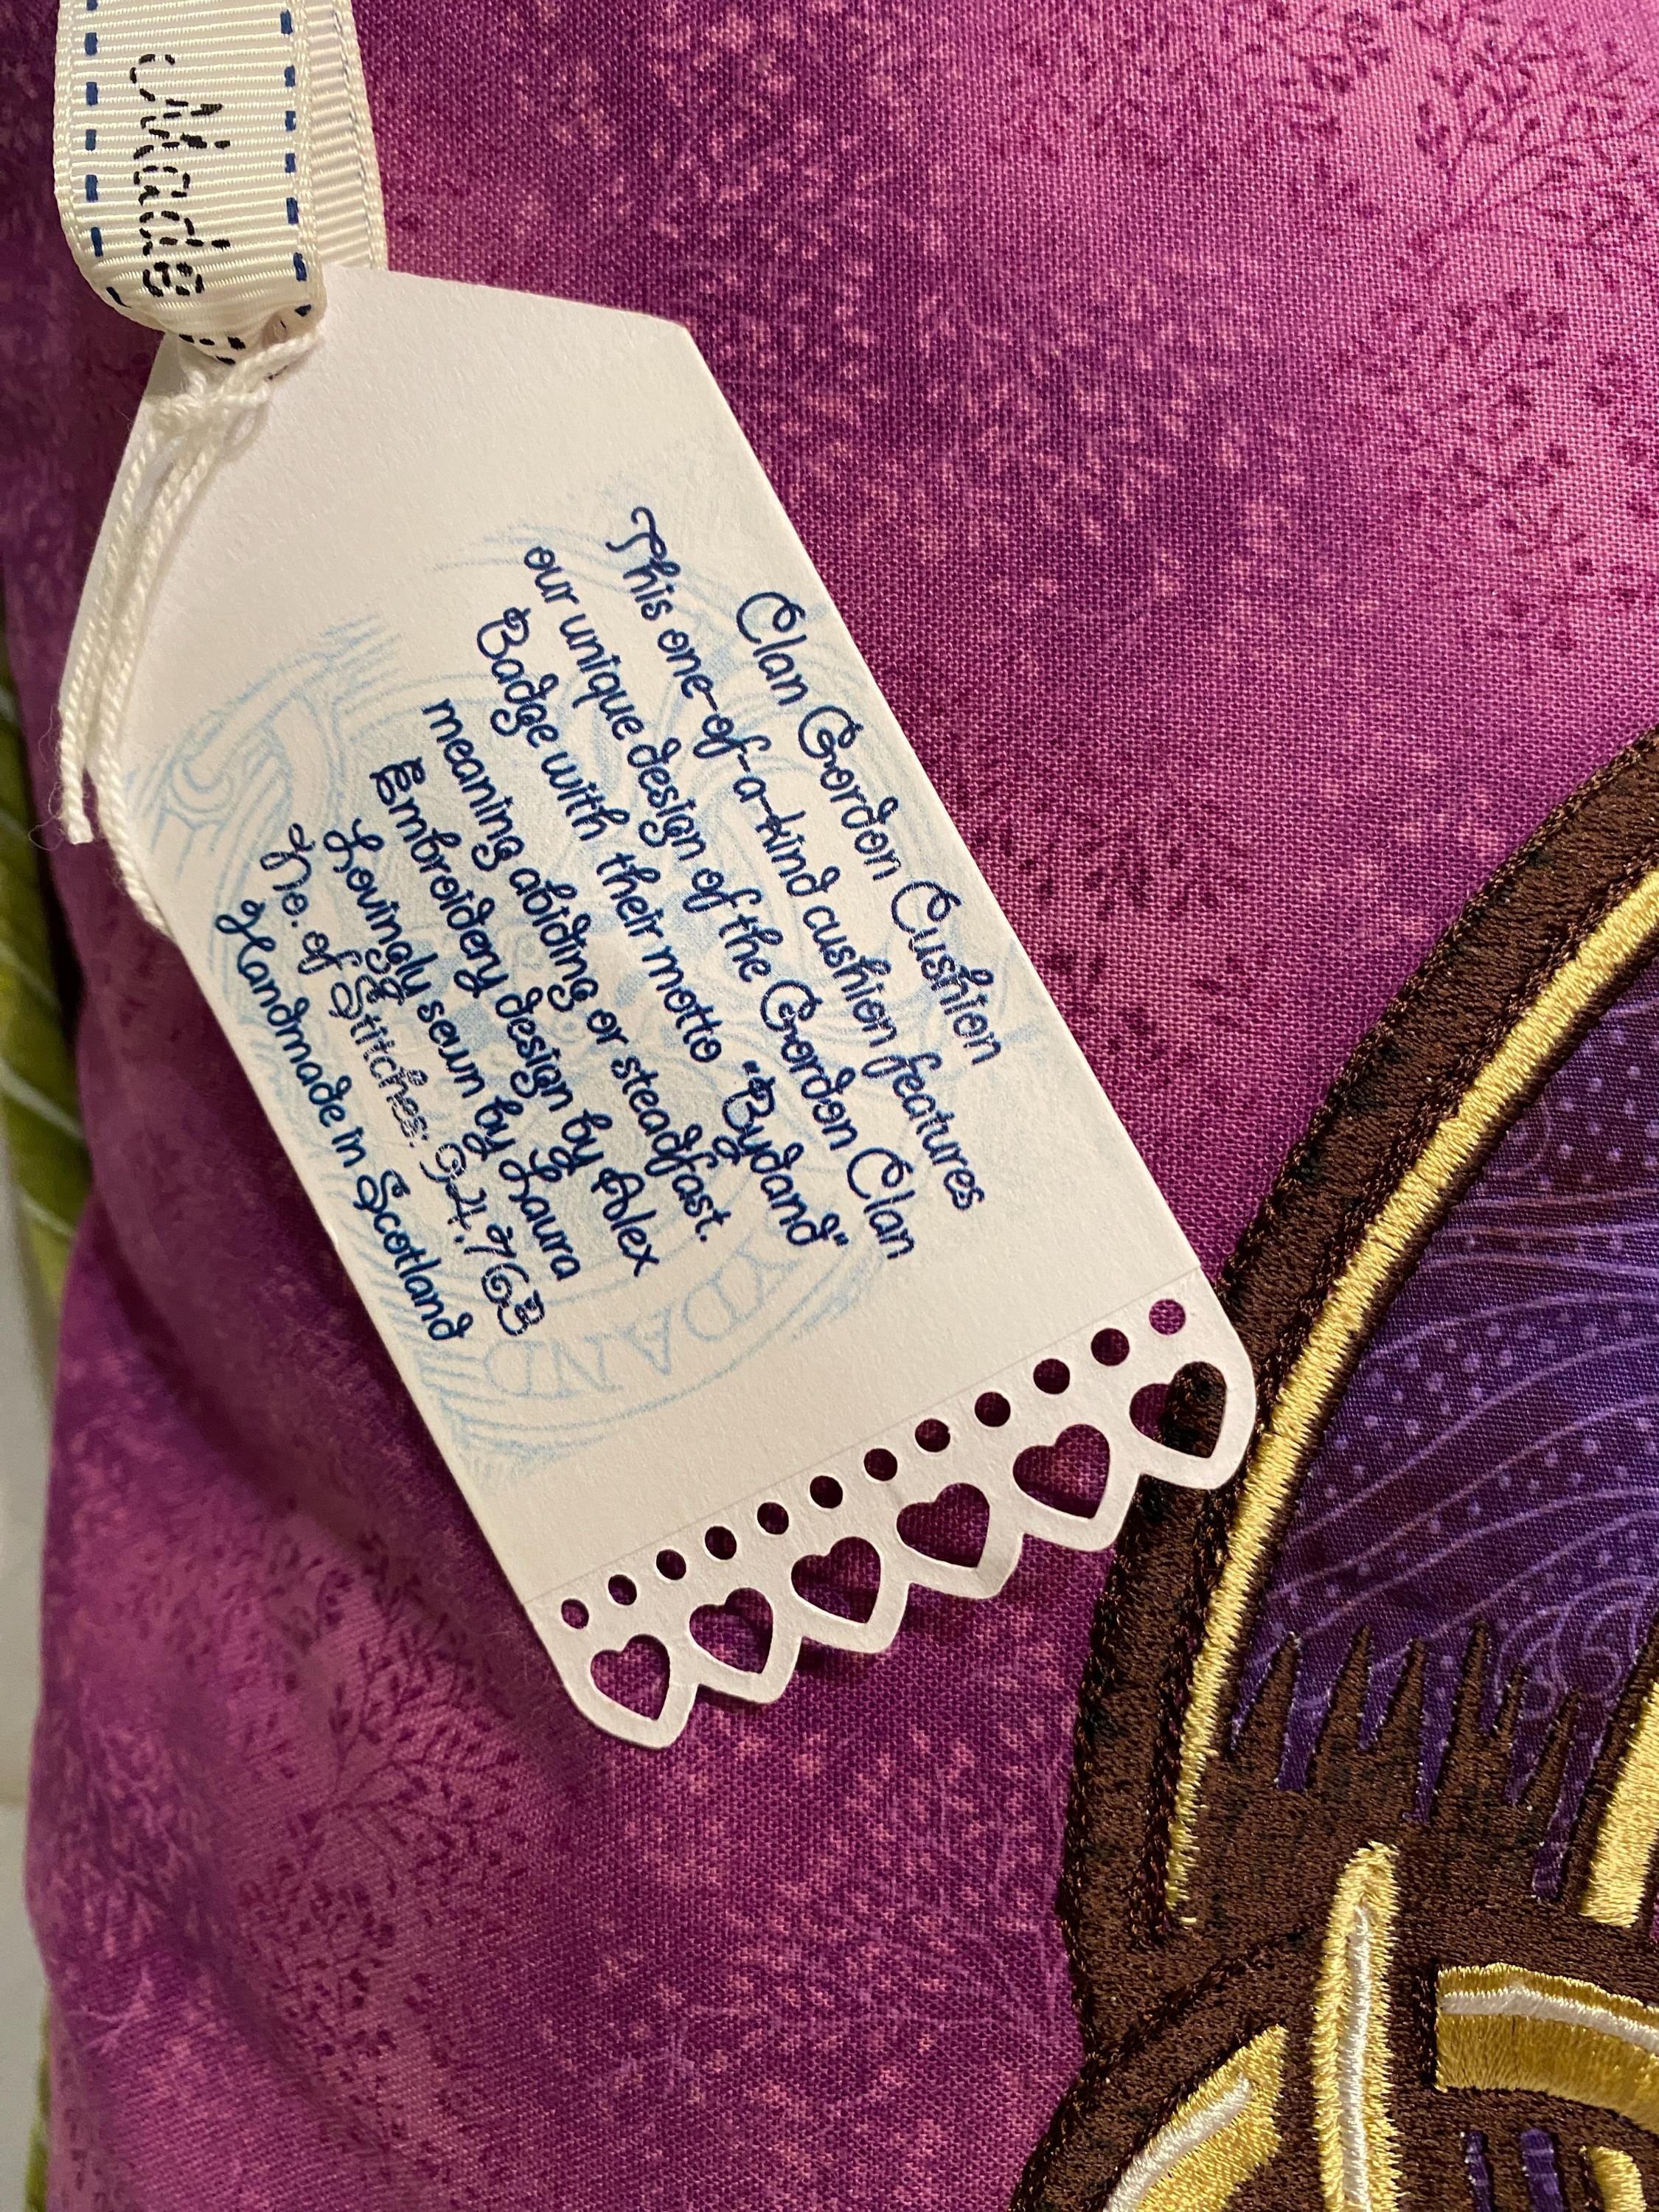 Made
Clan Gordon Cushion
This one-of-a-kind cushion features
our unique design of the Gordon Clan
Badge with their motto "Bydand"
meaning abiding or steadfast.
Embroidery design by Alex
Lovingly sewn by Laura
No. of Stitches: 94,763
Handmade in Scotland
YDAND